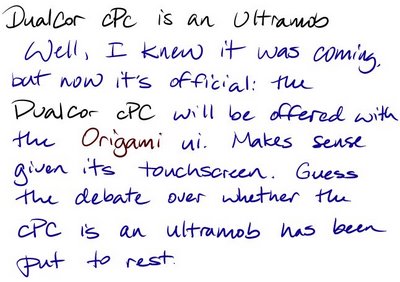 DualCor cPc is an Ultramob
Well, I knew it was coming,
but now it's official: the
DualCor cPC will be offered with
the Origami ui. Makes sense
given its touchscreen. Guess
the debate over whether the
cPC is an ultramob has been
put to rest.